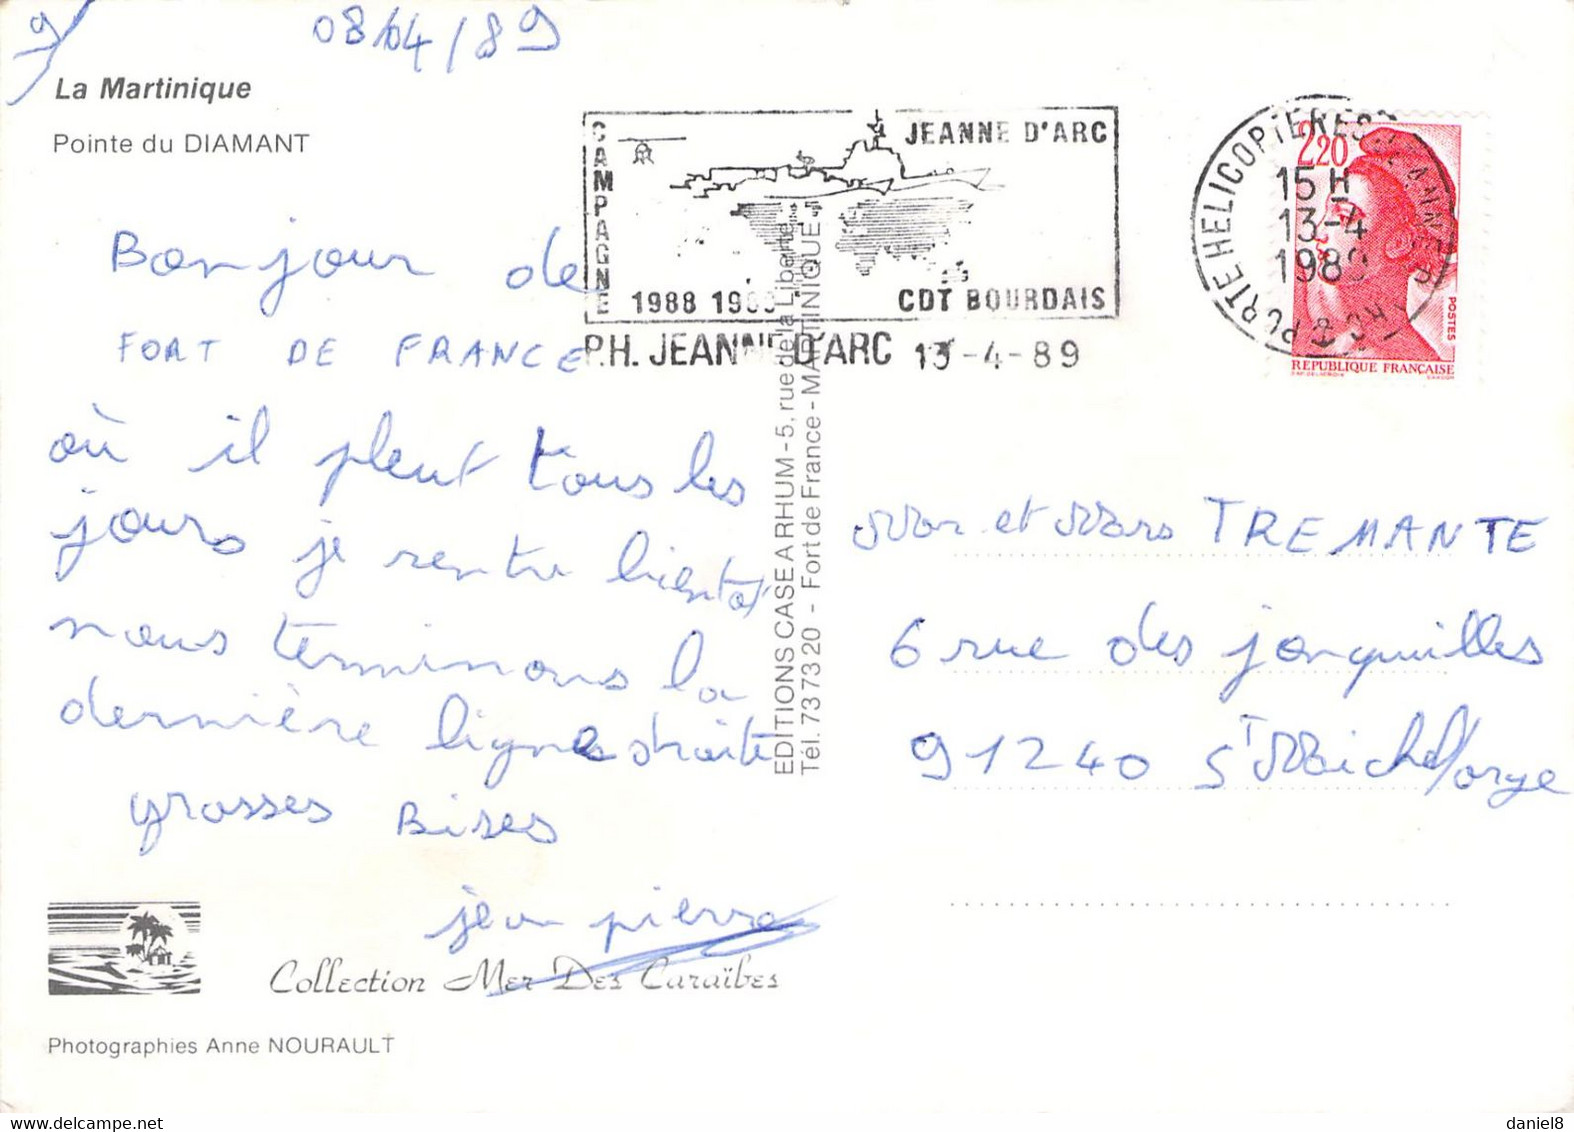 9
08/04/89
La Martinique
Pointe du DIAMANT
CAMPAGNE
JEANNE D'ARC
1988 1989
CDT BOURDAIS
P.H. JEANNE D'ARC 13-4-89
PORTE HELICOPTERES JEANNE D'ARC
15H
13-4
1989
2,20
POSTES
REPUBLIQUE FRANÇAISE
Bonjour de
FORT DE FRANCE
où il pleut tous les
jours je rentre bientôt
nous terminons la
dernière ligne droite
grosses Bises
jean pierre
EDITIONS CASE A RHUM - 5, rue de la Liberté
Tél. 73 73 20 - Fort de France - MARTINIQUE
Mor et Mars TREMANTE
6 rue des jonquilles
91240 St Michel/orge
Collection Mer Des Caraïbes
Photographies Anne NOURAULT
daniel8